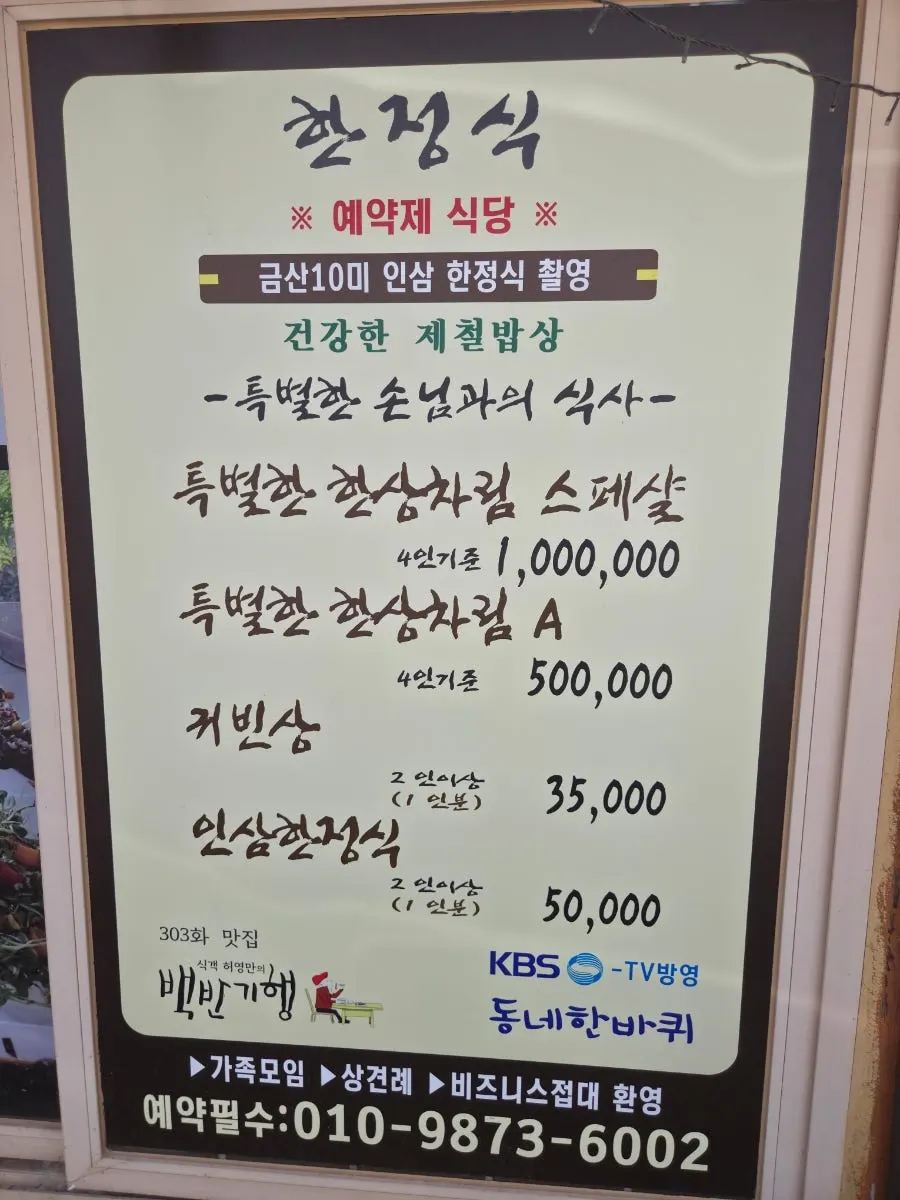 한정식
※ 예약제 식당 ※
금산10미 인삼 한정식 촬영
건강한 제철밥상
-특별한 손님과의 식사-
특별한 한상차림 스페샬
4인기준 1,000,000
특별한 한상차림 A
4인기준 500,000
귀빈상
2인이상
(1인분) 35,000
인삼한정식
2인이상
(1인분) 50,000
303화 맛집
식객 허영만의
백반기행
KBS -TV방영
동네한바퀴
▶가족모임 ▶상견례 ▶비즈니스접대 환영
예약필수:010-9873-6002